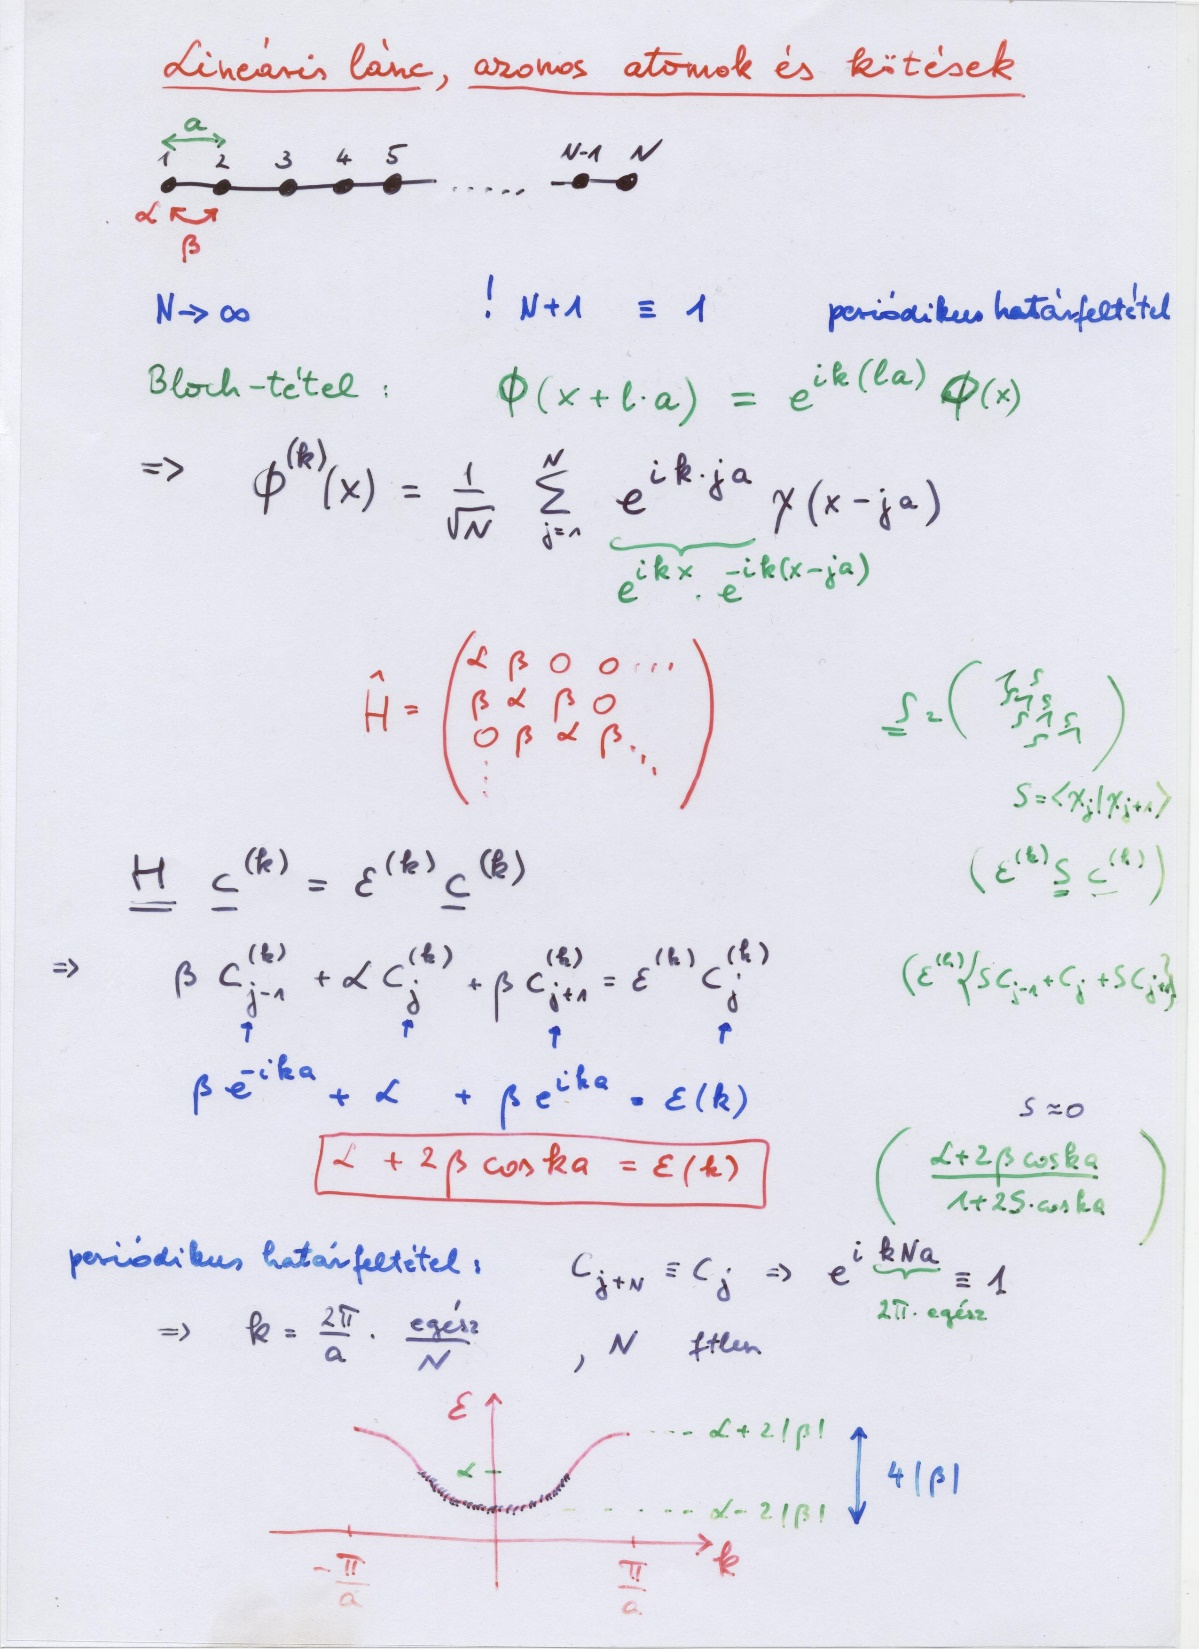 Lineáris lánc, azonos atomok és kötések
a
1 2 3 4 5 ...... N-1 N
α
β
N → ∞ ! N+1 ≡ 1 periódikus határfeltétel
Bloch-tétel : Φ(x+l·a) = e^{ik(la)} Φ(x)
=> ϕ^{(k)}(x) = 1/√N ∑_{j=1}^{N} e^{ik·ja} χ(x-ja)
e^{ikx} · e^{-ik(x-ja)}
Ĥ = ( α β 0 0 ...
β α β 0
0 β α β ⋱
⋮ )
S = ( 1 S
S 1 S
S 1 S
S 1 )
S = <χ_j|χ_{j+1}>
H c^{(k)} = ε^{(k)} c^{(k)} ( ε^{(k)} S c^{(k)} )
=> β C_{j-1}^{(k)} + α C_j^{(k)} + β C_{j+1}^{(k)} = ε^{(k)} C_j^{(k)} (ε^{(k)} {S C_{j-1} + C_j + S C_{j+1}}
↑ ↑ ↑ ↑
β e^{-ika} + α + β e^{ika} = ε(k)
S ≈ 0
α + 2β cos ka = ε(k) ( α+2β cos ka / 1+2S·cos ka )
periódikus határfeltétel: C_{j+N} ≡ C_j => e^{ikNa} ≡ 1
2π·egész
=> k = 2π/a · egész/N , N ftlen
ε
α + 2|β|
α
4|β|
α - 2|β|
k
-π/a π/a